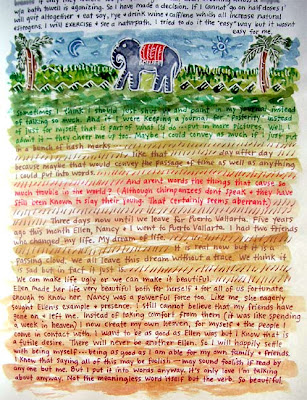 wife bath towell is agonizing. So I have made a decision. If I cannot go on half doses I
will quit altogether + eat soy, rye + drink wine + caffeine which all increase natural
estrogens. I will EXERCISE + see a naturopath. I tried to do it the "easy" way but it wasn't
easy for me.
Sometimes I think I should just shut up and paint in my journal instead
of talking so much. And if I were keeping a journal for "posterity" instead
of just for myself that is part of what I'd do -- put in more pictures. Well, I
admit it -- they cheer me up too. Maybe I could convey as much if I just put
a bunch of hash marks
like this day after day
because maybe that would convey the passage of time as well as anything
I could put into words.
And aren't words the things that cause so
much trouble in the world? (Although chimpanzees don't speak + they have
still been known to slay their young. That certainly seems aberrant)
Three days now until we leave for Puerto Vallarta. Five years
ago this month Ellen, Nancy + I went to Puerto Vallarta. I had two friends
who changed my life. My dream of life.
It is real now but it is a
passing cloud. We all leave this dream without a trace. We think it
is sad but in fact it just is.
We can make life ugly or we can make it beautiful.
Ellen made her life very beautiful both for herself + for all of us fortunate
enough to know her. Nancy was a powerful force too. Like me, she eagerly
sought Ellen's example + presence. I still cannot believe that my friends have
gone on + left me. Instead of taking comfort from them (it was like spending
a week in heaven) I now create my own heaven, for myself + the people I
come in contact with. I want to be as good as Ellen was but I know that is
a futile desire. There will never be another Ellen. So I will happily settle
with being myself -- being as good as I am able for my own family + friends.
I know that saying all of this may be foolish -- may sound foolish if read by
any one but me. But I put it into words anyway. It's only love I'm talking
about anyway. Not the meaningless word itself but the verb. So beautiful.